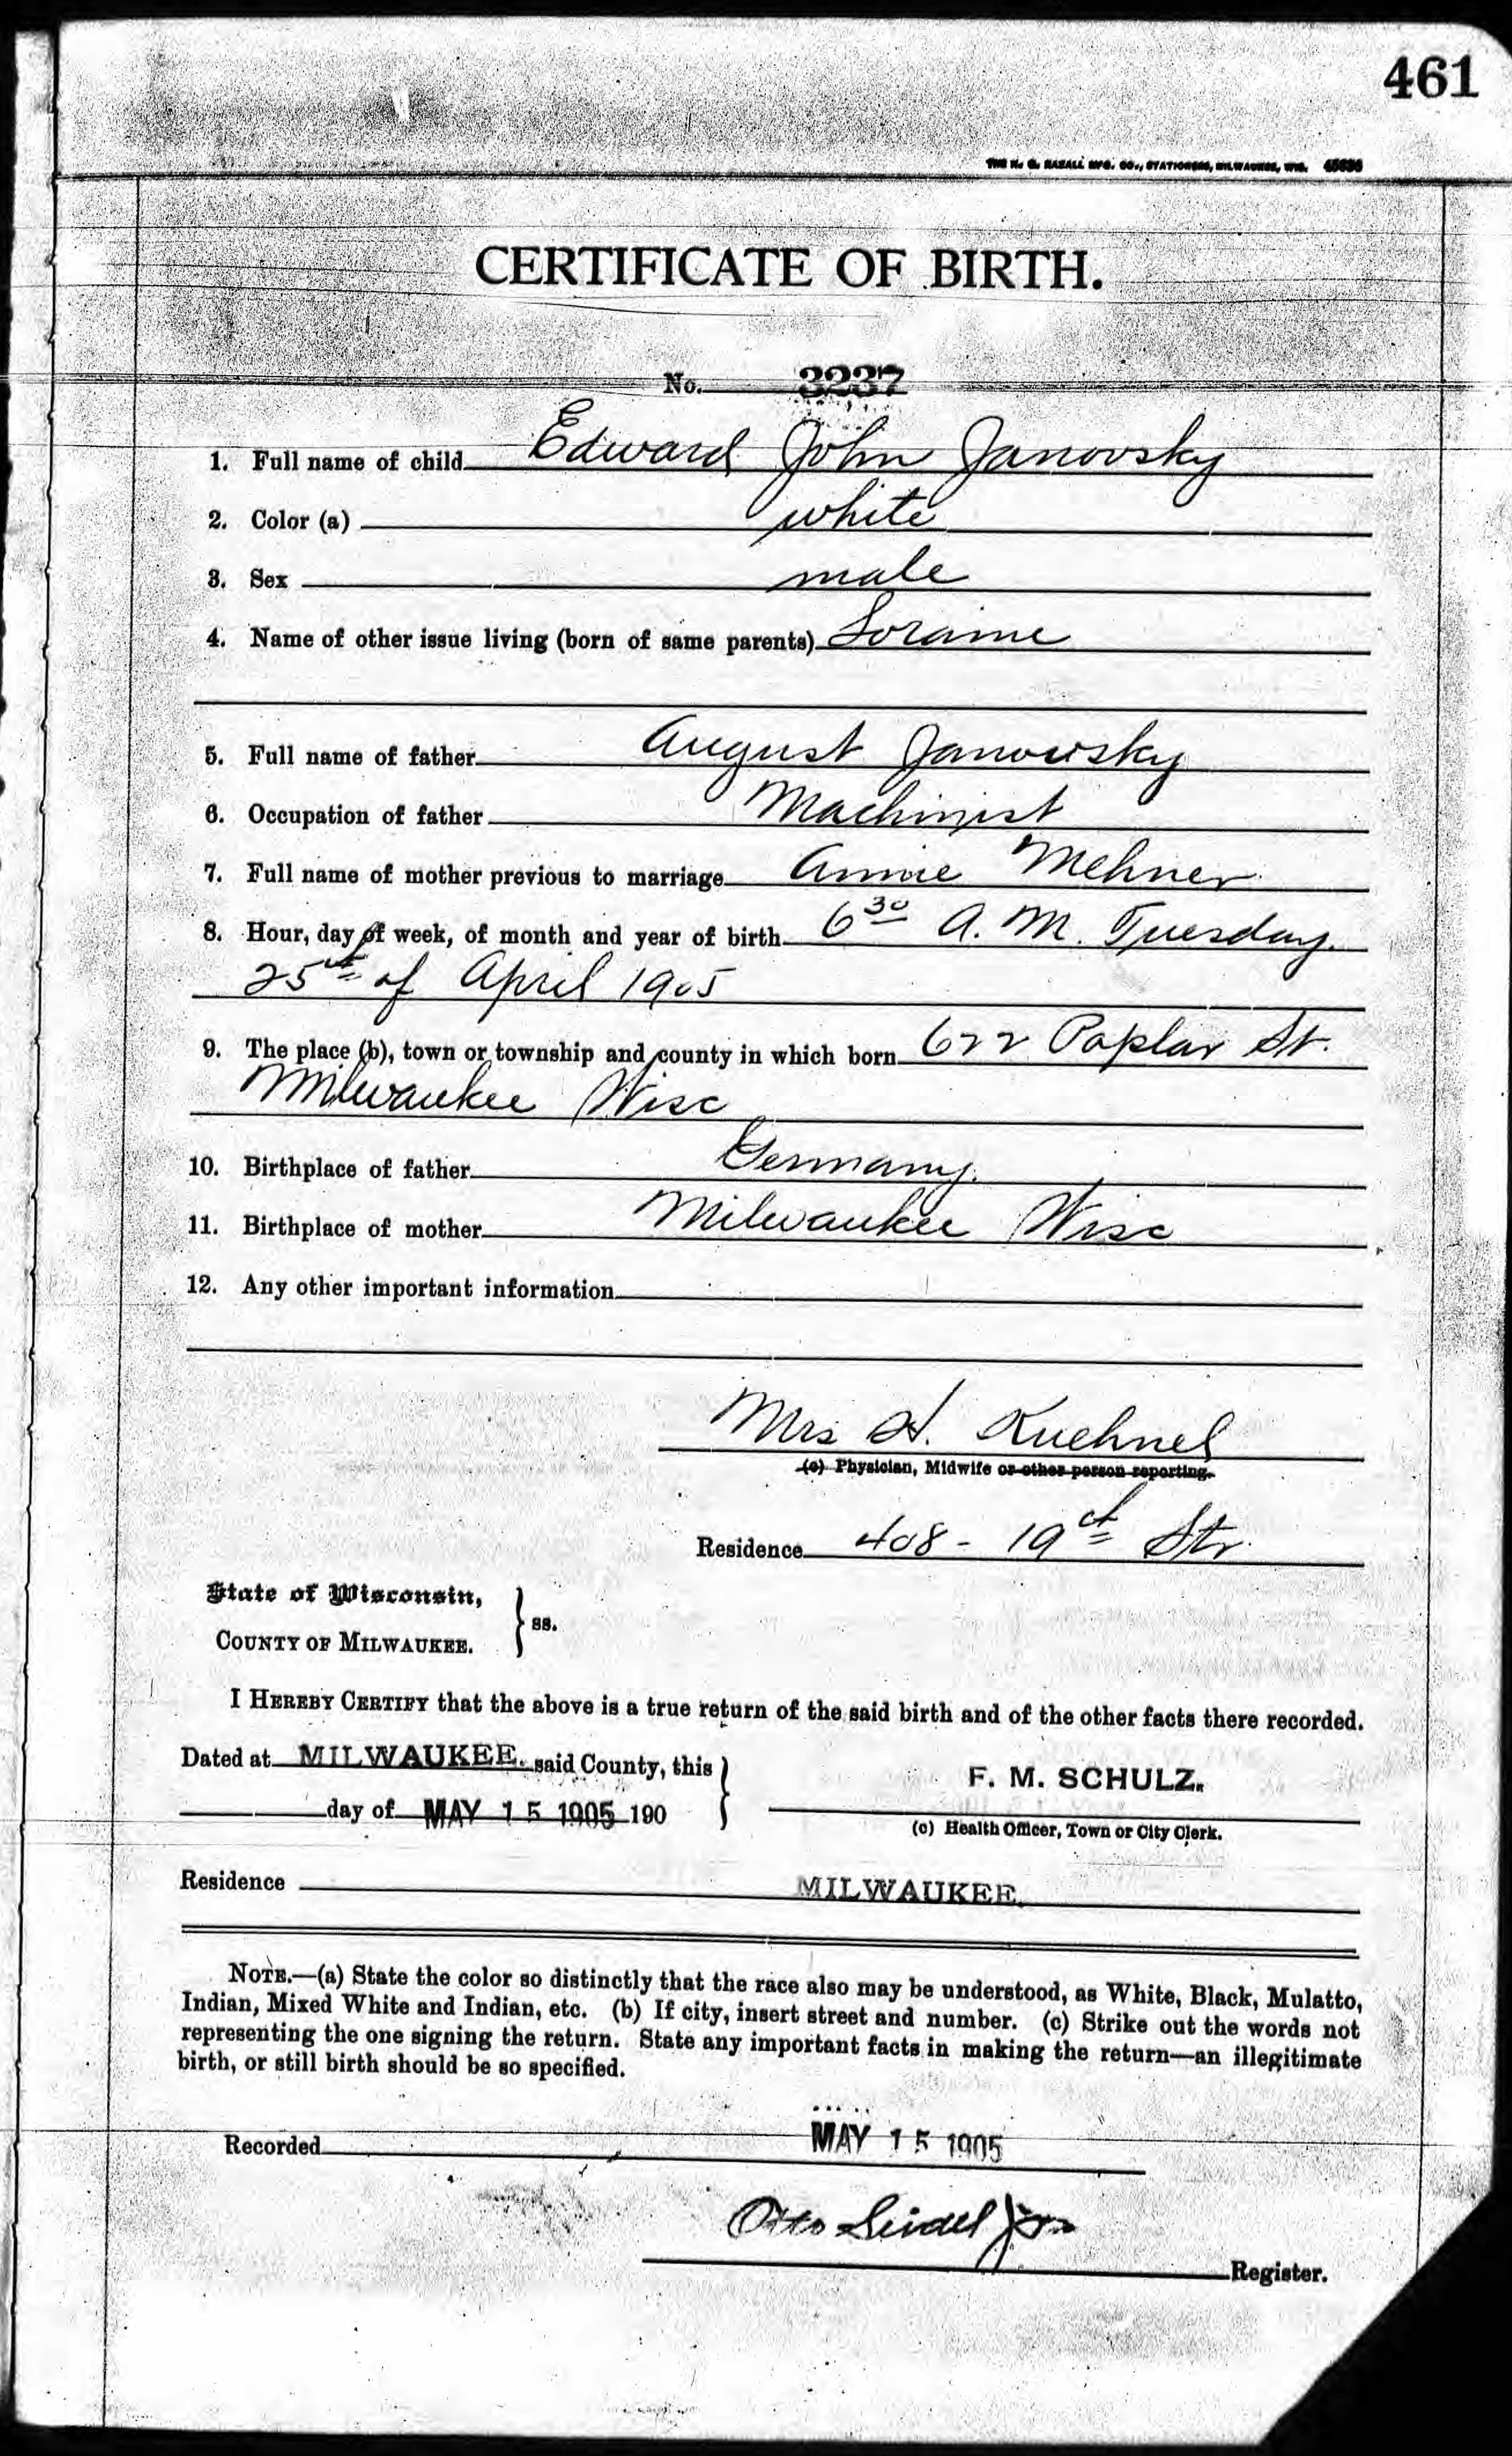 461
THE H. G. RAZALL MFG. CO., STATIONERS, MILWAUKEE, WIS.
CERTIFICATE OF BIRTH.
No. 3237
1. Full name of child Edward John Janovsky
2. Color (a) white
3. Sex male
4. Name of other issue living (born of same parents) Loraine
5. Full name of father August Janowsky
6. Occupation of father Machinist
7. Full name of mother previous to marriage Annie Mehner
8. Hour, day of week, of month and year of birth 6 30 A. M. Tuesday.
25th of April 1905
9. The place (b), town or township and county in which born 622 Poplar St.
Milwaukee Wisc
10. Birthplace of father Germany.
11. Birthplace of mother Milwaukee Wisc
12. Any other important information
Mrs H. Kuehnel
(c) Physician, Midwife or other person reporting.
Residence 408 - 19th Str.
State of Wisconsin,
COUNTY OF MILWAUKEE. } ss.
I HEREBY CERTIFY that the above is a true return of the said birth and of the other facts there recorded.
Dated at MILWAUKEE. said County, this
day of MAY 15 1905 190
F. M. SCHULZ.
(c) Health Officer, Town or City Clerk.
Residence MILWAUKEE.
NOTE.—(a) State the color so distinctly that the race also may be understood, as White, Black, Mulatto,
Indian, Mixed White and Indian, etc. (b) If city, insert street and number. (c) Strike out the words not
representing the one signing the return. State any important facts in making the return—an illegitimate
birth, or still birth should be so specified.
Recorded MAY 15 1905
Otto Seidel Jr
Register.